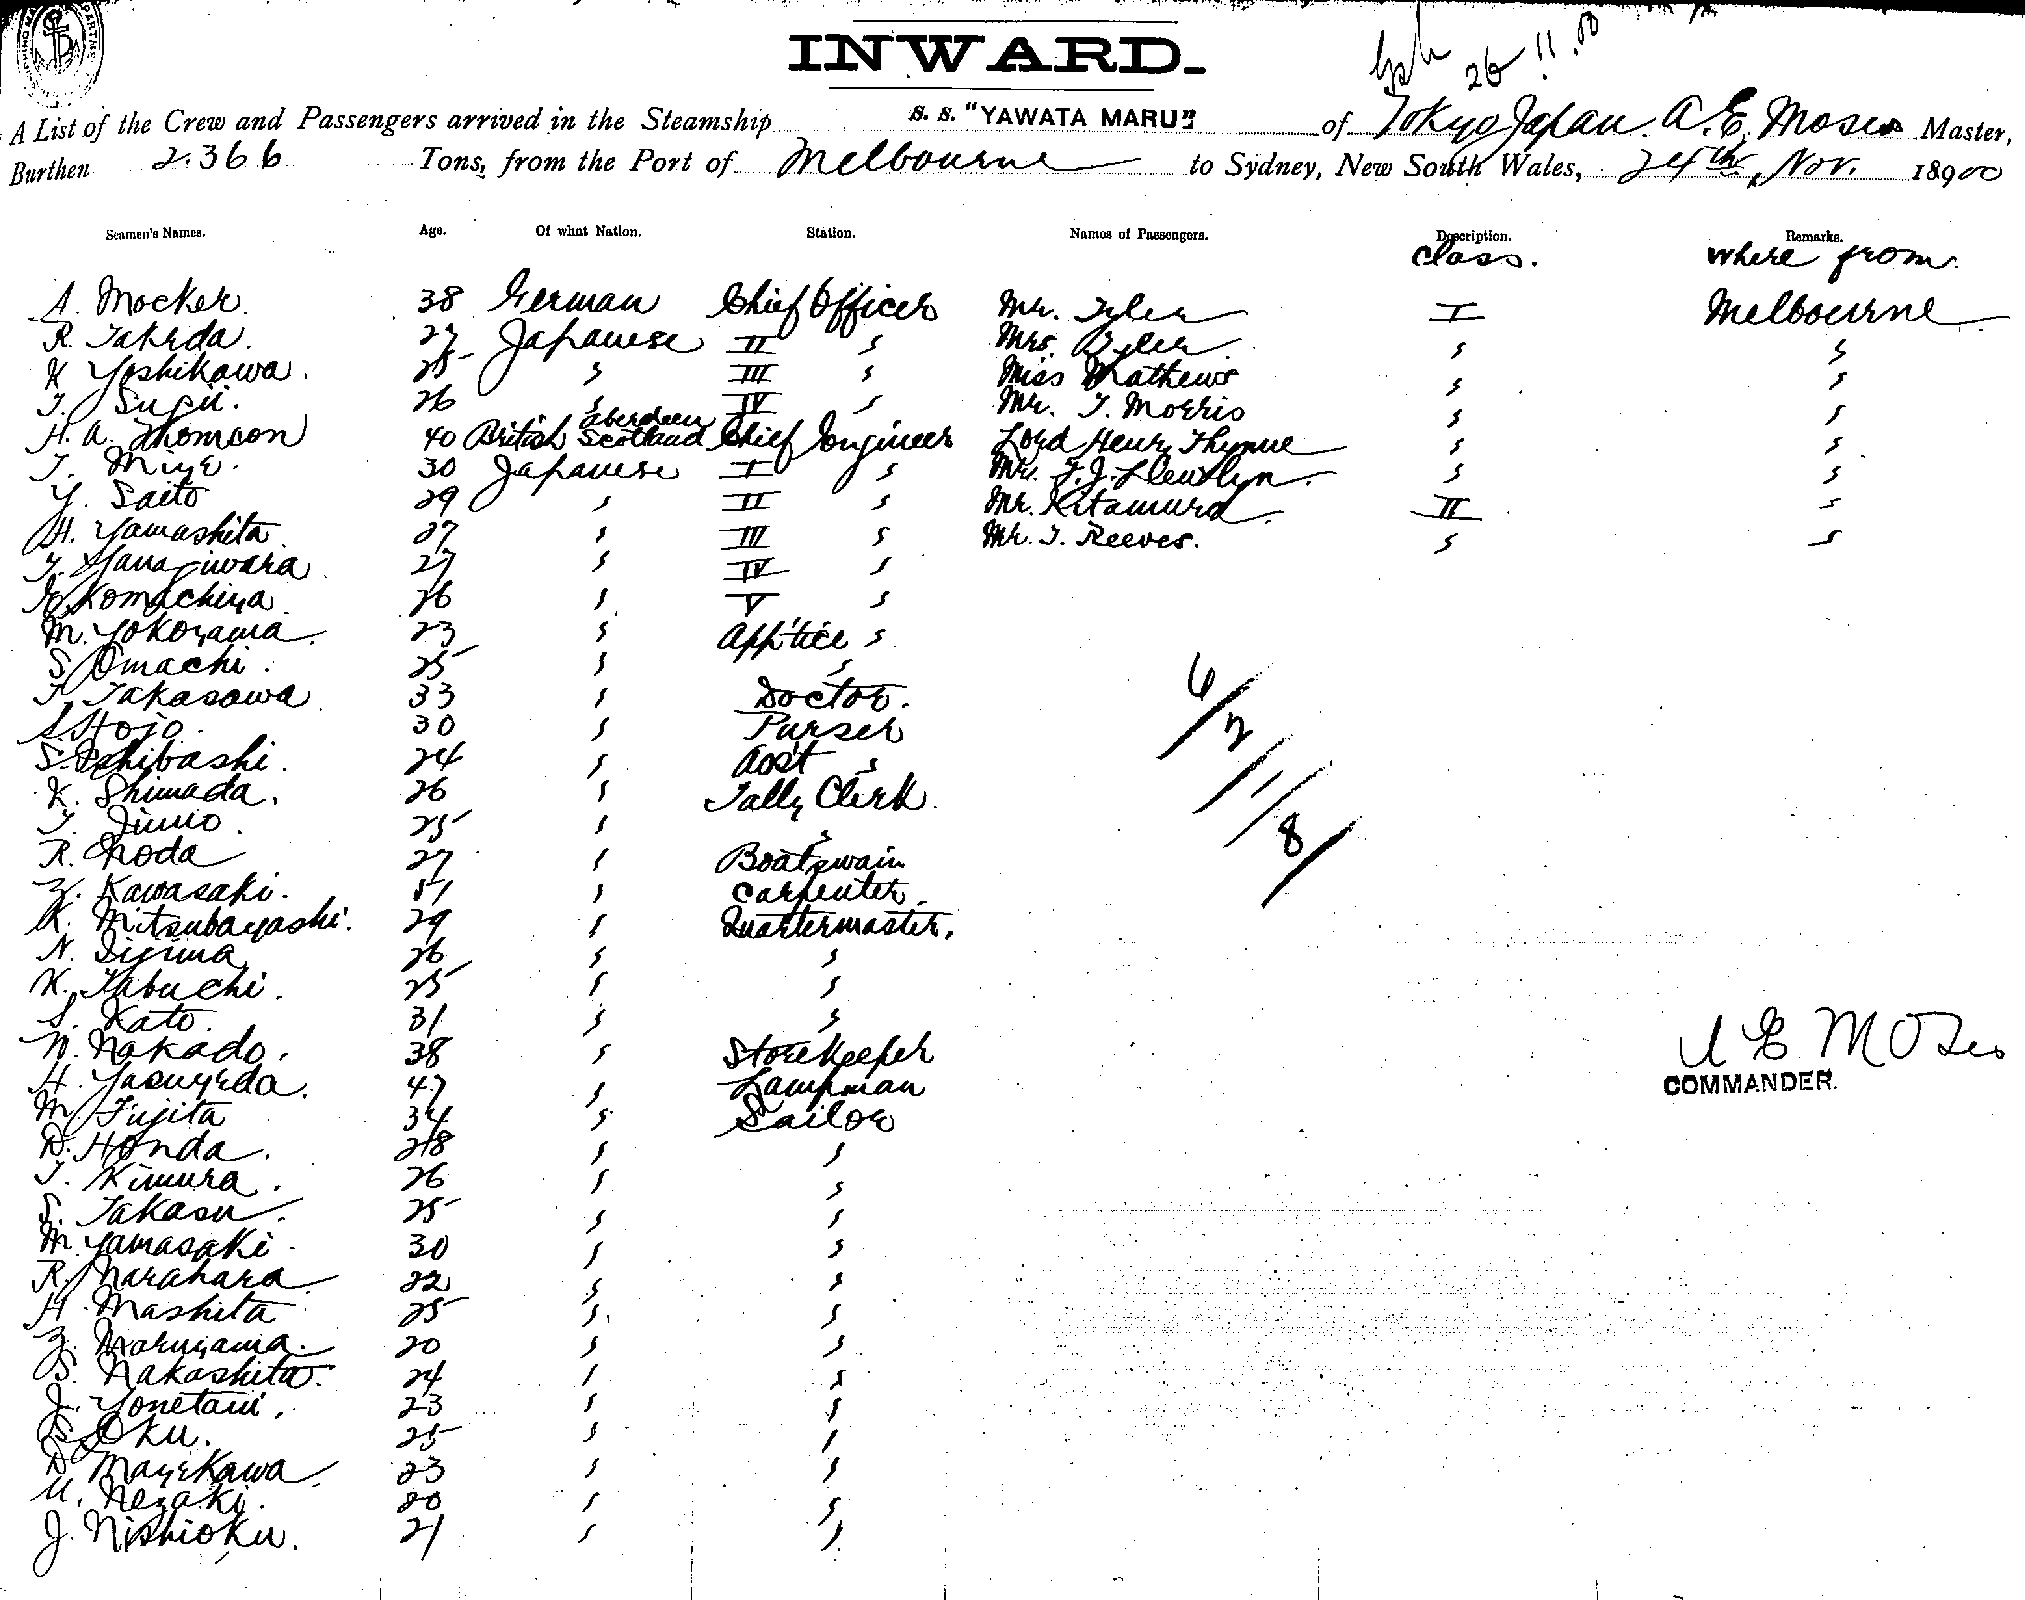 INWARD.
26.11.00
A List of the Crew and Passengers arrived in the Steamship S. S. "YAWATA MARU" of Tokyo Japan. A. E. Moses Master,
Burthen 2.366 Tons, from the Port of Melbourne to Sydney, New South Wales, 24th Nov. 18900
Seamen's Names. Age. Of what Nation. Station. Names of Passengers. Description. Remarks.
class. where from.
A. Mocker. 38 German Chief Officer Mr. Tyler I Melbourne
R. Takeda. 27 Japanese II " Mrs. Tyler " "
K. Yoshikawa. 25 " III " Miss Mathews " "
T. Sugii. 26 " IV " Mr. T. Morris " "
H. A. Thomson 40 British Aberdeen Scotland Chief Engineer Lord Henry Thynne " "
T. Miye. 30 Japanese I " Mrs. F. J. Llewllyn. " "
Y. Saito 29 " II " Mr. Kitamura. II "
H. Yamashita 27 " III " Mr. T. Reeves. " "
T. Yanagiwara 27 " IV "
Komachiya 26 " V "
M. Yokoyama. 23 " App'tice "
S. Omachi. 25 " "
T. Takasawa 33 " Doctor.
S. Hojo. 30 " Purser
S. Ishibashi. 24 " Ass't "
K. Shimada. 26 " Tally Clerk
T. Jimio. 25 " "
R. Noda 27 " Boatswain
Z. Kawasaki. 51 " Carpenter.
K. Mitsubayashi. 29 " Quartermaster.
N. Iijima 26 " "
K. Tabuchi. 25 " "
S. Kato. 31 " "
N. Nakado. 38 " Storekeeper
H. Yasuyeda. 47 " Lampman
M. Fujita 34 " Sailor
D. Honda. 28 " "
T. Kimura. 26 " "
S. Takasu. 25 " "
M. Yamasaki. 30 " "
R. Narahara 22 " "
H. Mashita 25 " "
Z. Maruyama. 20 " "
S. Nakashita. 24 " "
J. Yonetani. 23 " "
S. Oku. 25 " "
D. Mayekawa. 23 " "
U. Nezaki. 20 " "
J. Nishioku. 21 " "
6/2/1/8/
A E Moses
COMMANDER.